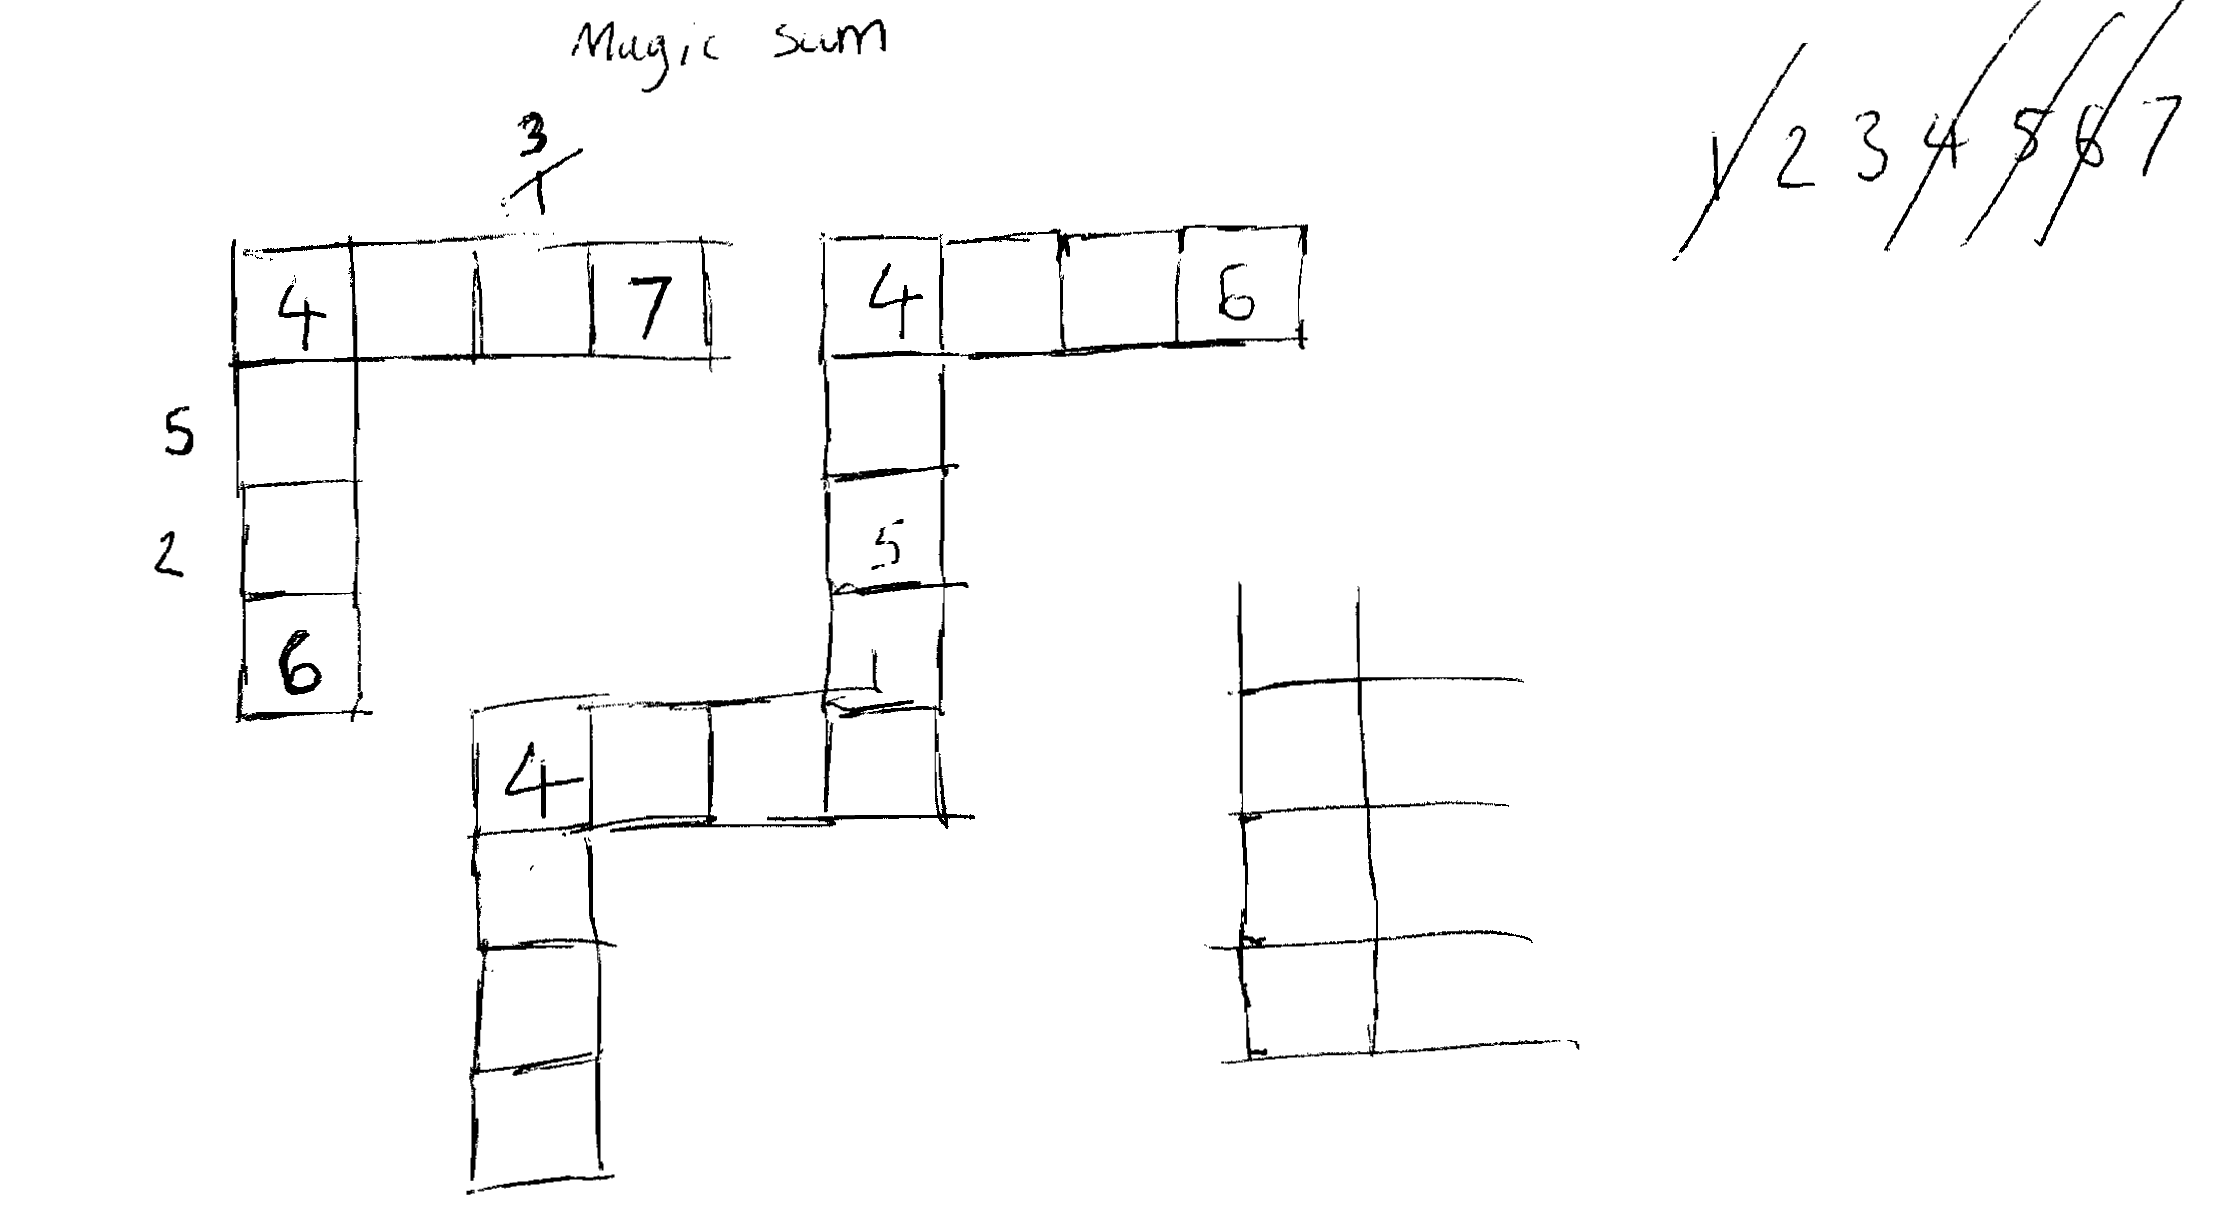 Magic sum
1 2 3 4 5 6 7
3
1
4 7
4 6
5
2
5
6
1
4